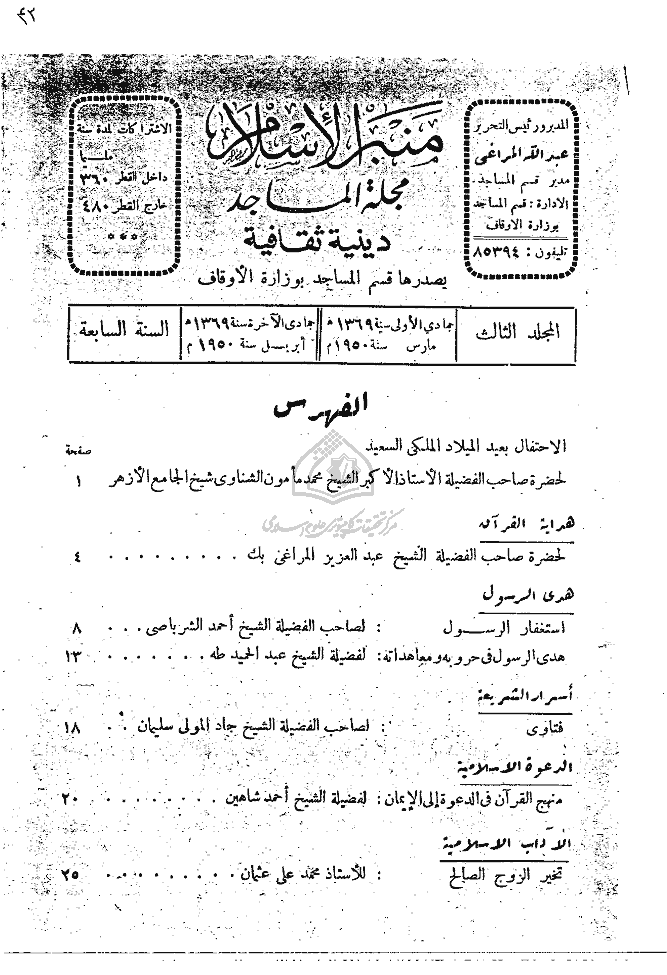 ٤٢
منبر الإسلام
مجلة المساجد
دينية ثقافية
يصدرها قسم المساجد بوزارة الأوقاف
المدير ورئيس التحرير
عبد الله المراغى
مدير قسم المساجد
الادارة : قسم المساجد
بوزارة الاوقاف
تليفون : ٨٥٣٩٤
الاشتراكات لمدة سنة
مليما
داخل القطر ٣٦٠
خارج القطر ٤٨٠
المجلد الثالث
جمادى الأولى سنة ١٣٦٩ ه
مارس سنة ١٩٥٠ م
جمادى الآخرة سنة ١٣٦٩ ه
أبريل سنة ١٩٥٠ م
السنة السابعة
الفهرس
صفحة
الاحتفال بعيد الميلاد الملكى السعيد
لحضرة صاحب الفضيلة الأستاذ الأكبر الشيخ محمد مأمون الشناوى شيخ الجامع الأزهر ١
مرکز تحقیقات کامپیوتری علوم اسلامی
هداية القرآن
لحضرة صاحب الفضيلة الشيخ عبد العزيز المراغى بك . . . . . . . . . ٤
هدى الرسول
استغفار الرسول : لصاحب الفضيلة الشيخ أحمد الشرباصى . . . ٨
هدى الرسول فى حروبه ومعاهداته : لفضيلة الشيخ عبد الحميد طه . . . . . . . ١٣
أسرار الشريعة
فتاوى : لصاحب الفضيلة الشيخ جاد المولى سليمان . . ١٨
الدعوة الاسلامية
منهج القرآن فى الدعوة إلى الإيمان : لفضيلة الشيخ أحمد شاهين . . . . . . . . ٢٠
الآداب الاسلامية
تخير الزوج الصالح : للأستاذ محمد على عثمان . . . . . . . . . ٢٥